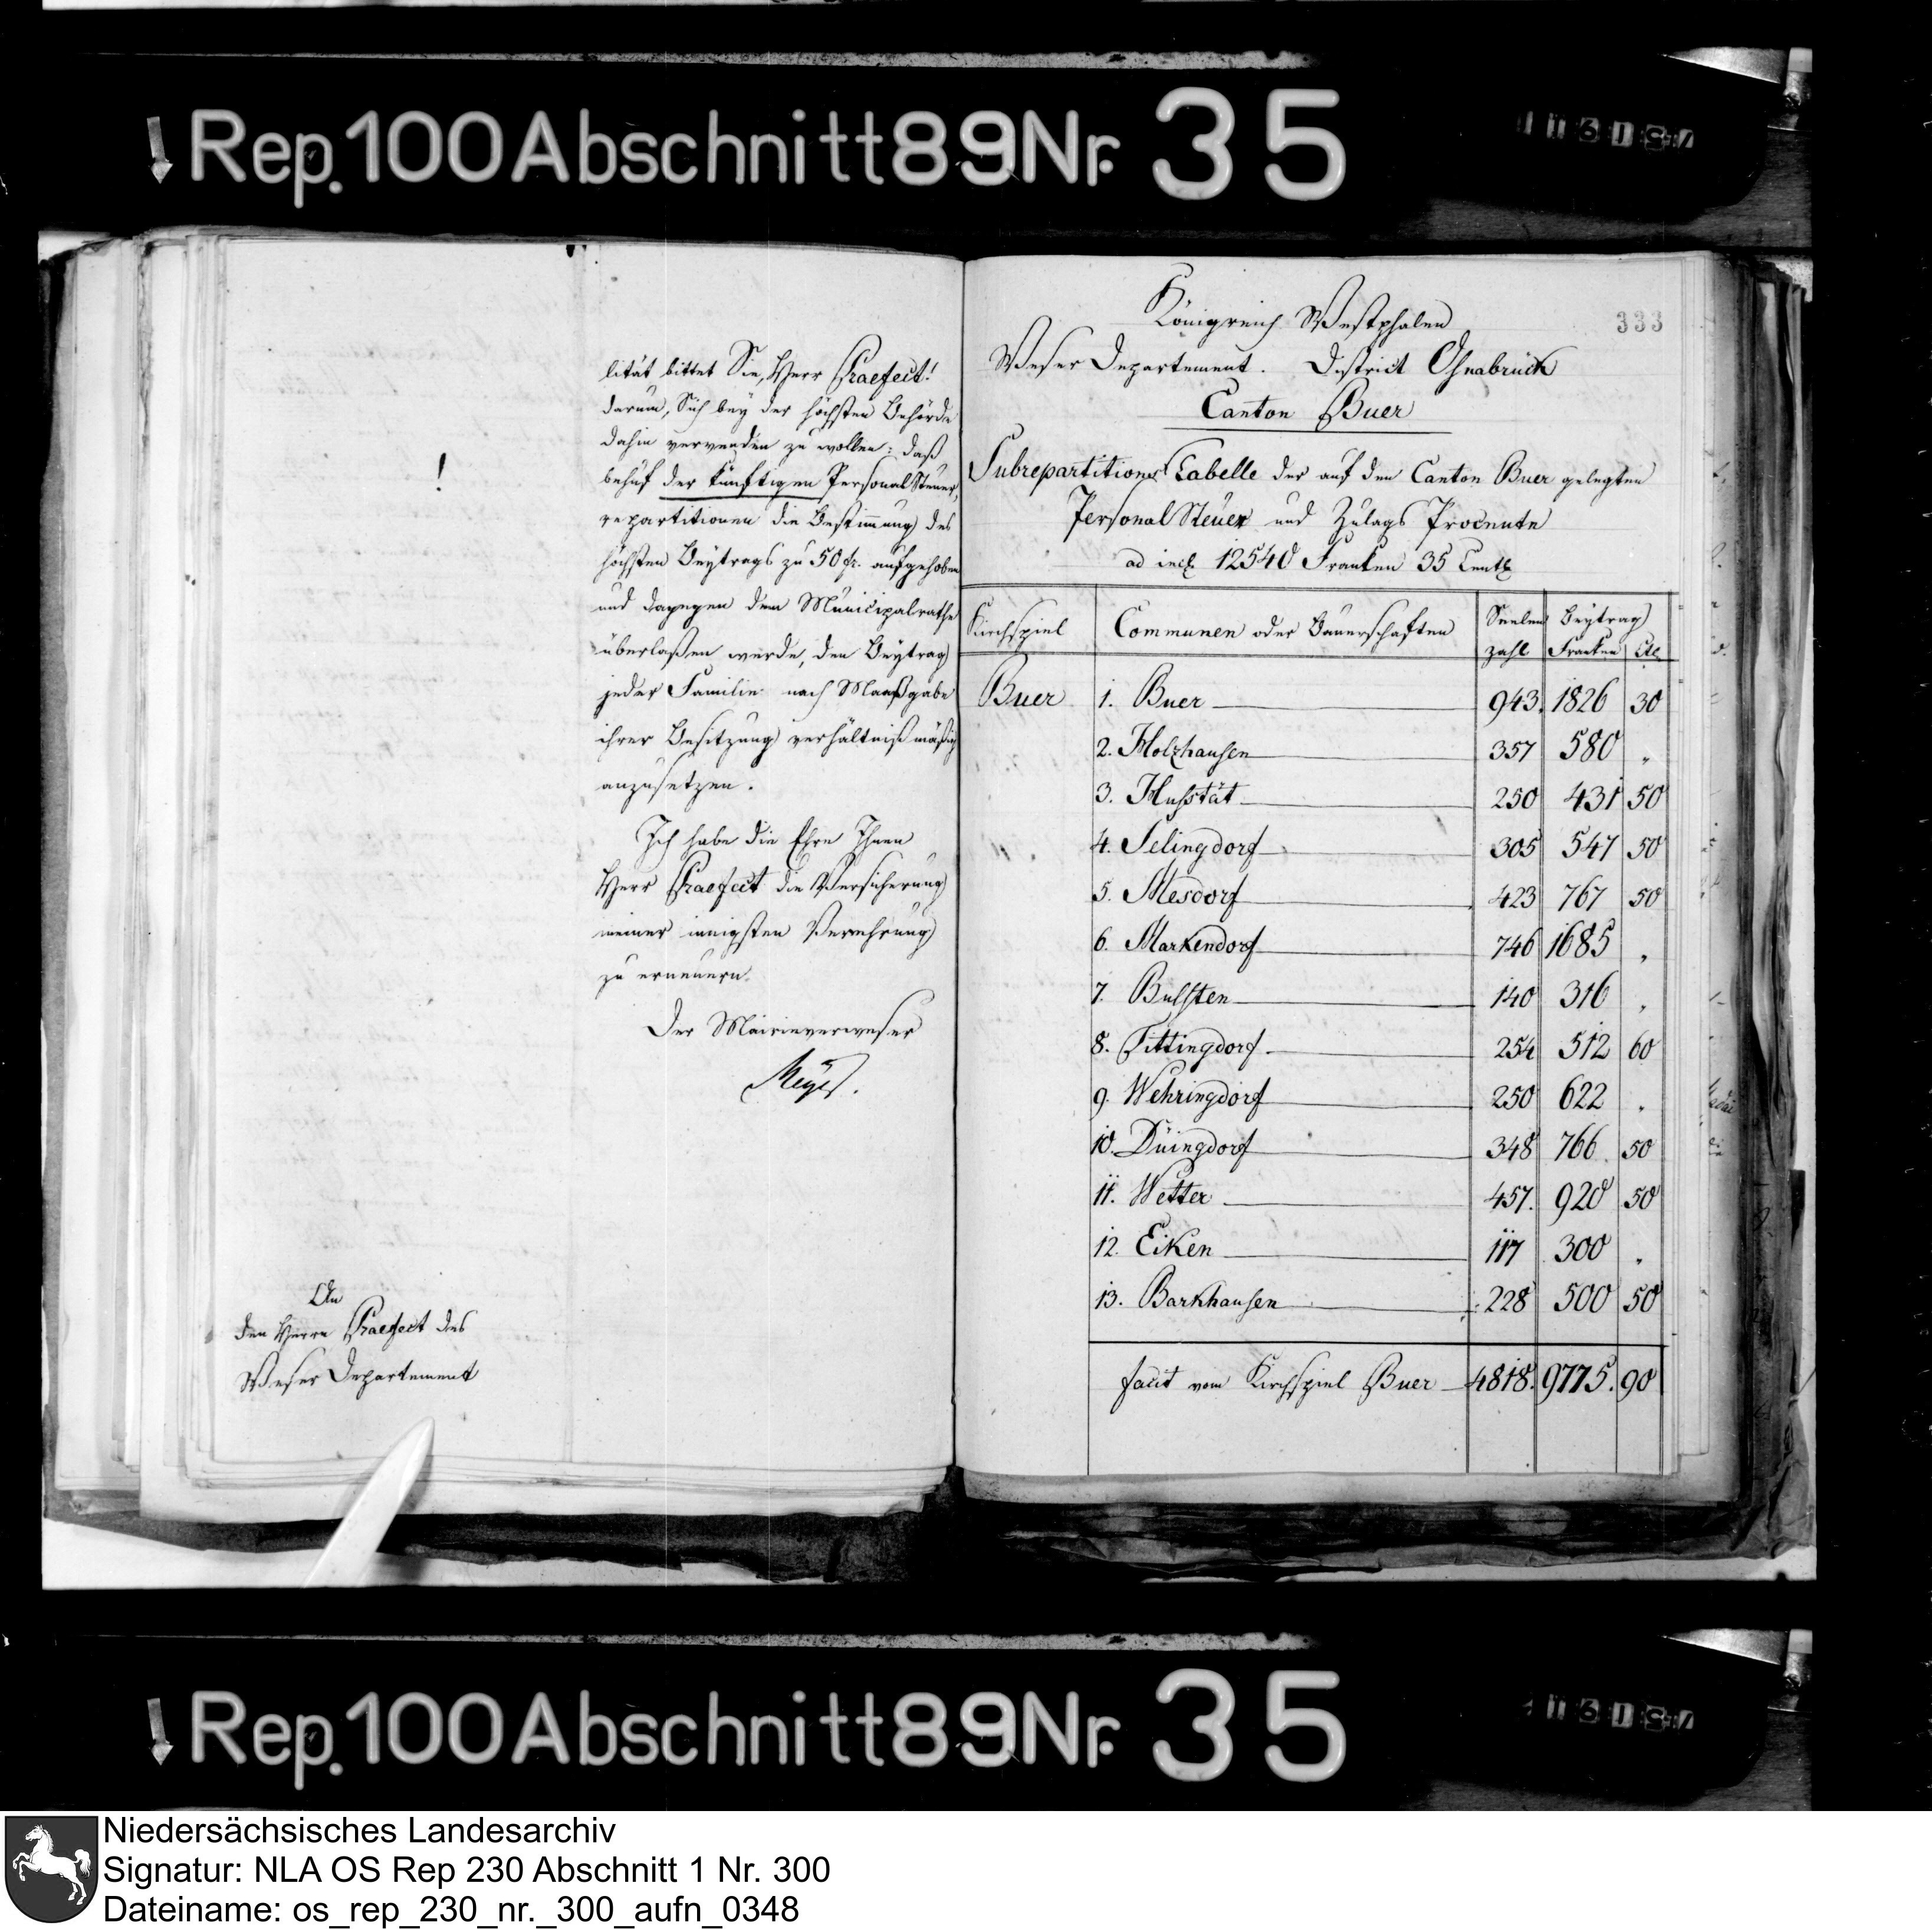 Rep. 100 Abschnitt 89 Nr. 35
lität bittet Sie, Herr Praefect!
darum, Sich bey der höchsten Behörde
dahin verwenden zu wollen: daß
behuf der künftigen Personal Steuer,
repartitionen die Bestimmung des
höchsten Beytrags zu 50 fr. aufgehoben
und dagegen dem Municipalrathe
überlaßen werde, den Beytrag
jeder Familie nach Maaßgabe
ihrer Besitzung verhältnißmäßig
anzusetzen.
Ich habe die Ehre Ihnen
Herr Praefect die Versicherung
meiner innigsten Verehrung
zu erneuern.
Der Mairieverweser
!
An
den Herrn Praefect des
Weser Departement
333
Königreich Westphalen
Weser Departement. District Osnabrück
Canton Buer
Subrepartitions Tabelle der auf den Canton Buer gelegten
Personal Steuer und Zulags Procente
ad incl 12540 Franken 35 Cent
Kirchspiel Communen oder Bauerschaften Seelen zahl Beytrag Franken Cte
Buer 1. Buer 943. 1826 30
2. Holzhausen 357 580 "
3. Husstät 250 431 50
4. Selingdorf 305 547 50
5. Mesdorf 423 767 50
6. Markendorf 746 1685 "
7. Bulsten 140 316 "
8. Tittingdorf 254 512 60
9. Wehringdorf 250 622 "
10. Düingdorf 348 766 50
11. Wetter 457. 920 50
12. Eiken 117 300 "
13. Barkhausen 228 500 50
facit vom Kirchspiel Buer 4818. 9775. 90
Rep. 100 Abschnitt 89 Nr. 35
Niedersächsisches Landesarchiv
Signatur: NLA OS Rep 230 Abschnitt 1 Nr. 300
Dateiname: os_rep_230_nr._300_aufn_0348